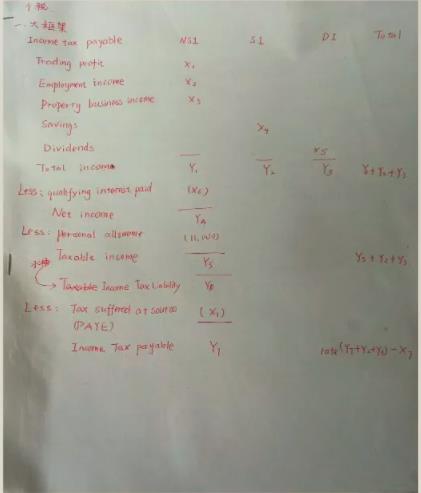 个税
一. 大框架
Income tax payable NSI SI DI Total
Trading profit X1
Employment income X2
Property business income X3
Savings X4
Dividends X5
Total income Y1 Y2 Y3 Y1+Y2+Y3
Less: qualifying interest paid (X6)
Net income Y4
Less: personal allowance (11,000)
Taxable income Y5 Y5+Y2+Y3
Income Tax Liability Y6
Less: Tax suffered at source (X7)
(PAYE)
Income Tax payable Y7 rate(Y5+Y2+Y3)-X7